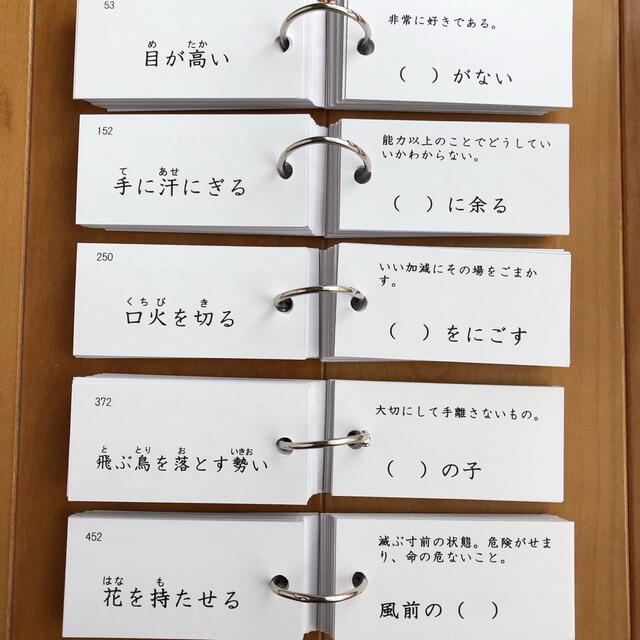 53
めたか
目が高い
非常に好きである。
（　）がない
152
てあせ
手に汗にぎる
能力以上のことでどうしてい
いかわからない。
（　）に余る
250
くちびき
口火を切る
いい加減にその場をごまか
す。
（　）をにごす
372
ととりおいきお
飛ぶ鳥を落とす勢い
大切にして手離さないもの。
（　）の子
452
はなも
花を持たせる
滅ぶ寸前の状態。危険がせま
り、命の危ないこと。
風前の（　）